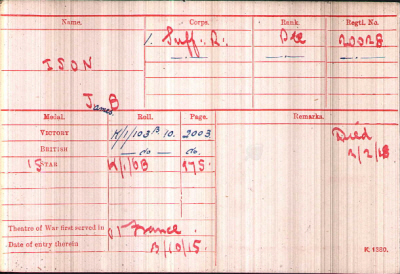 Name. Corps. Rank. Regtl. No.
1. Suff: R: Pte 20028
ISON
James B
Medal. Roll. Page. Remarks.
VICTORY K/1/103 B 10. 2003 Died
BRITISH — do — do. 3/2/18
15 STAR K/1/6B 975.
Theatre of War first served in (1) France
Date of entry therein 13/10/15.
K. 1380.